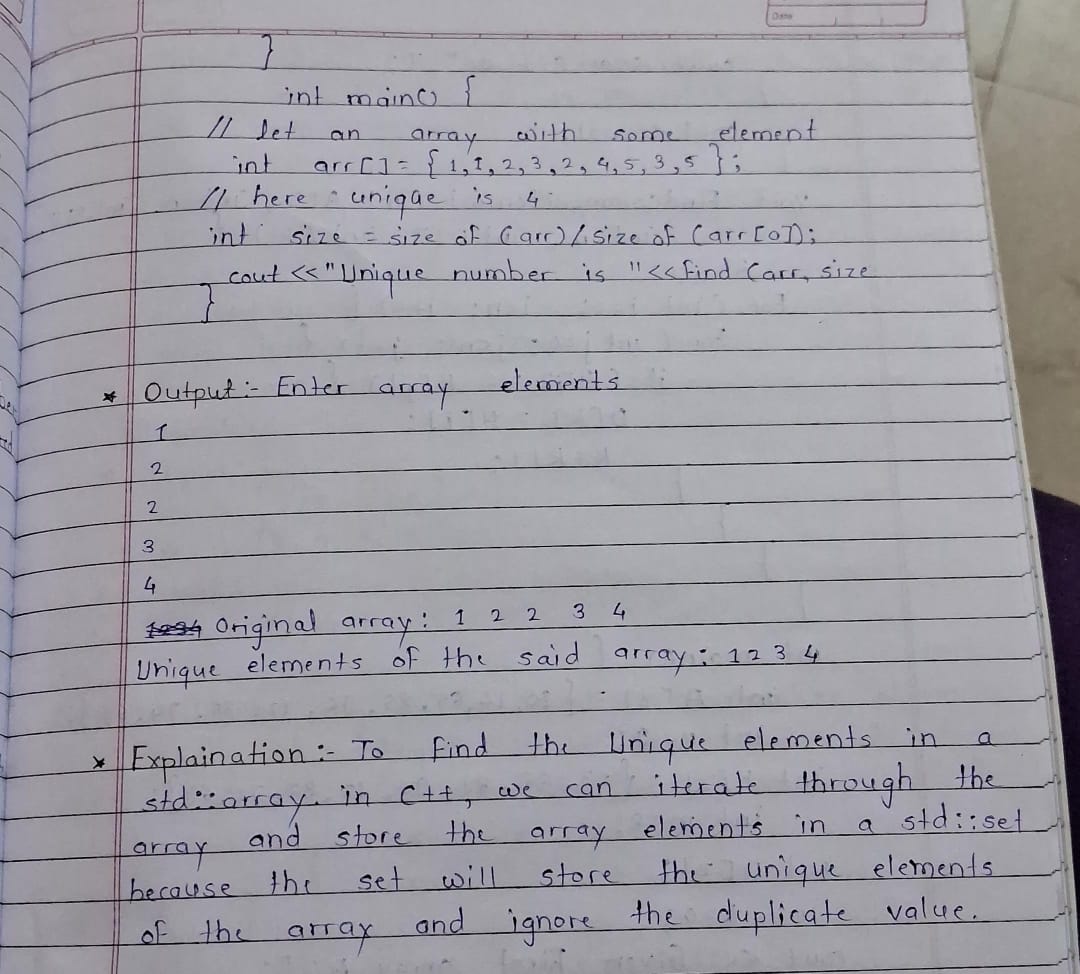 Date
}
int main() {
// let an array with some element
int arr[] = { 1, 1, 2, 3, 2, 4, 5, 3, 5 };
// here unique is 4
int size = size of (arr) / size of (arr[0]);
cout << "Unique number is " << find (arr, size
}
* Output :- Enter array elements
1
2
2
3
4
Original array : 1 2 2 3 4
Unique elements of the said array : 1 2 3 4
* Explaination :- To find the Unique elements in a
std::array. in C++, we can iterate through the
array and store the array elements in a std::set
because the set will store the unique elements
of the array and ignore the duplicate value.